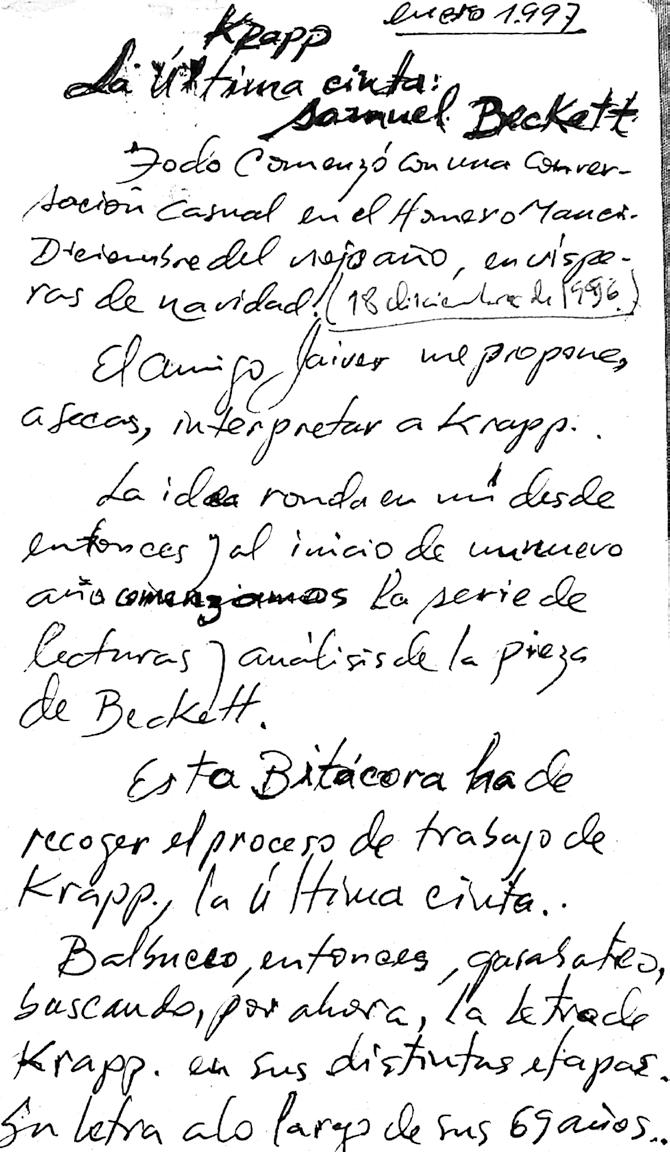 enero 1.997
Krapp
La Última cinta:
Samuel Beckett
Todo Comenzó con una conver-
sación casual en el Homero Manci.
Diciembre del viejo año, en víspe-
ras de navidad. (18 diciembre de 1996.)
El amigo Jaiver me propone,
a secas, interpretar a Krapp..
La idea ronda en mí desde
entonces y al inicio de un nuevo
año comenzamos la serie de
lecturas y análisis de la pieza
de Beckett.
Esta Bitácora ha de
recoger el proceso de trabajo de
Krapp., la última cinta..
Balbuceo, entonces, garabateo,
buscando, por ahora, la letra de
Krapp. en sus distintas etapas.
Su letra a lo largo de sus 69 años..